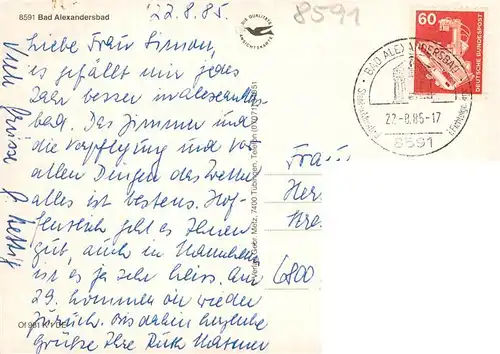 8591 Bad Alexandersbad
22.8.85.
DIE QUALITÄTS
ANSICHTSKARTE
8591
60
DEUTSCHE BUNDESPOST
BAD ALEXANDERSBAD
22.-8.85-17
8591
Liebe Frau Simon,
es gefällt mir jedes
Jahr besser in Alexanders-
bad. Das Zimmer und
die Verpflegung und vor
allen Dingen das Wetter
alles ist bestens. Hof-
fentlich geht es Ihnen
gut, auch in Mannheim
ist es ja sehr heiss. Am
29. kommen wir wieder
zurück. Bis dahin herzliche
Grüsse Ihre Ruth
Viele Grüsse
Verlag Gebr. Metz, 7400 Tübingen, Telefon
Frau
Her
Kro
6800